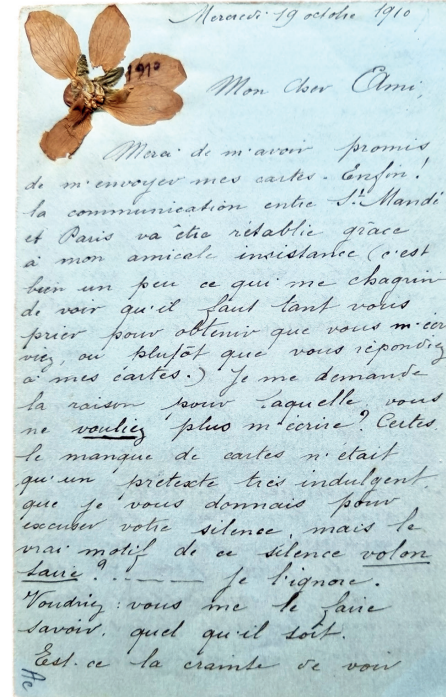 Mercredi 19 octobre 1910
1910
Mon cher Ami,
Merci de m'avoir promis
de m'envoyer mes cartes. Enfin!
la communication entre St. Mandé
et Paris va être rétablie grâce
à mon amicale insistance (c'est
bien un peu ce qui me chagrine
de voir qu'il faut tant vous
prier pour obtenir que vous m'écri
viez, ou plutôt que vous répondiez
à mes cartes.) Je me demande
la raison pour laquelle vous
ne vouliez plus m'écrire? Certes.
le manque de cartes n'était
qu'un prétexte très indulgent.
que je vous donnais pour
excuser votre silence, mais le
vrai motif de ce silence volon
taire? ------ Je l'ignore.
Voudriez-vous me le faire
savoir. quel qu'il soit.
Est-ce la crainte de voir
Ac